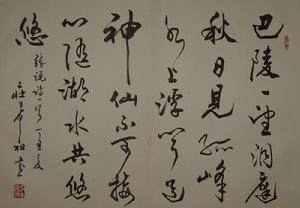 巴陵一望洞庭
秋日見孤峰
水上浮聞道
神仙不可接
心随湖水共悠
悠
說詩一首
書